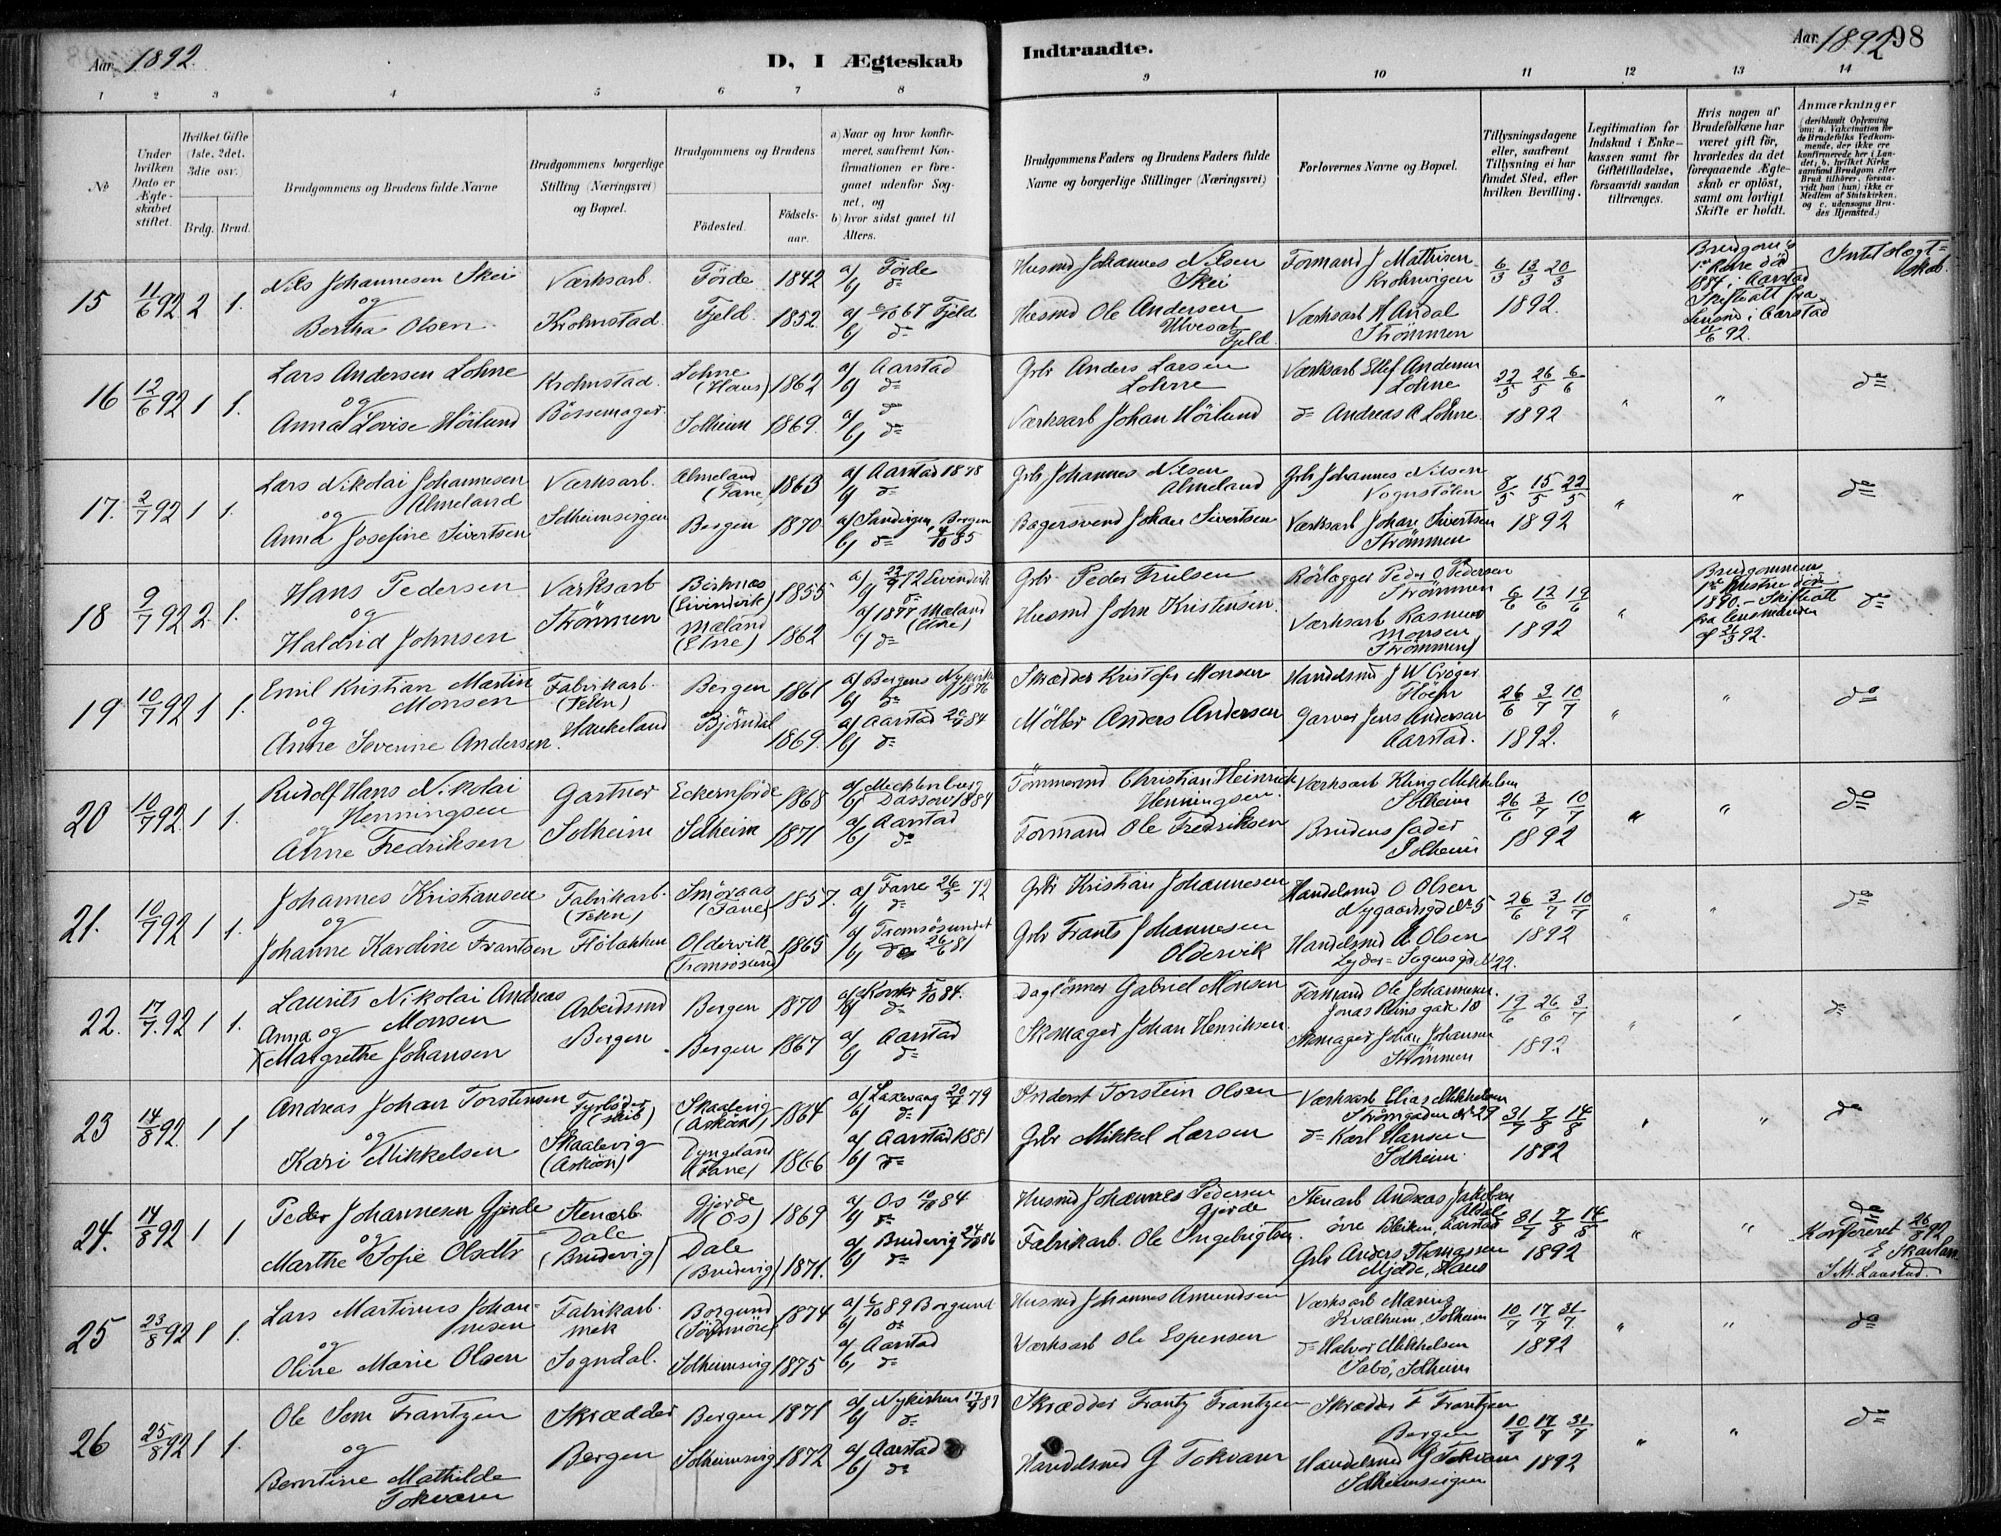 Aar 1892.
D, I Ægteskab Indtraadte.
Aar 1892 98
1 2 3 4 5 6 7 8 9 10 11 12 13 14
No
Under hvilken Dato er Ægteskabet stiftet.
Hvilket Gifte (1ste, 2det, 3die osv.)
Brdg. Brud.
Brudgommens og Brudens fulde Navne
Brudgommens borgerlige Stilling (Næringsvei) og Bopæl.
Brudgommens og Brudens
Fødested.
Fødselsaar.
a) Naar og hvor konfirmeret, saafremt Konfirmationen er foregaaet udenfor Sognet, og
b) hvor sidst gaaet til Alters.
Brudgommens Faders og Brudens Faders fulde Navne og borgerlige Stillinger (Næringsvei)
Forlovernes Navne og Bopæl.
Tillysningsdagene eller, saafremt Tillysning ei har fundet Sted, efter hvilken Bevilling.
Legitimation for Indskud i Enkekassen samt for Giftetilladelse, forsaavidt saadan tiltrænges.
Hvis nogen af Brudefolkene har været gift før, hvorledes da det foregaaende Ægteskab er opløst, samt om lovligt Skifte er holdt.
Anmærkninger (deriblandt Oplysning om: a. Vakcination for de Brudefolks Vedkommende, der ikke ere konfirmerede her i Landet; b. hvilket Kirkesamfund Brudgom eller Brud tilhører, forsaavidt han (hun) ikke er Medlem af Statskirken, og c. udensogns Brudes Hjemsted.)
15 11/6 92 2 1.
Nils Johannesen Skei
og
Bertha Olsen
Værksarb.
Krohnstad.
Førde 1842
Fjeld. 1852.
a) Førde
b) do
a) 67 Fjeld
b) do
Husmd Johannes Nilsen
Skei
Husmd Ole Andersen
Fjeld.
Formand J Mathisen
Krohnvigen
Værksarb A Andal
Strømmen
6/3 13/3 20/3
1892.
Brudgom's
1ste Kone død
1884 i Aarstad
Skifteatt fra
Lensmd i Aarstad
11/6 92.
Intet Slægtskab.
16 12/6 92 1 1.
Lars Andersen Lohne
og
Anna Lovise Höilund
Krohnstad.
Bøssemager.
Lohne
(Haus) 1862
Solheim 1869.
a) Aarstad
b) do
a) do
b) do
Grbr Anders Larsen
Lohne
Værksarb Johan Höilund
Værksarb Ellef Andersen
Lohne
do Andreas A Lohne.
22/5 26/5 6/6
1892
" " do
17. 2/7 92 1 1.
Lars Nikolai Johannesen
Almeland
og
Anna Josefine Sivertsen
Værksarb.
Solheimsvigen
Almeland
(Fane) 1863
Bergen 1870
a) Aarstad 1878
b) do
a) Sandvigen, Bergen
b) do 4/10 85
Grbr Johannes Nilsen
Almeland
Bagersvend Johan Sivertsen
Grbr Johannes Nilsen
Vognstølen
Værksarb Johan Sivertsen
Strømmen
8/5 15/5 22/5
1892
" " do
18 9/7 92 2. 1.
Hans Pedersen
og
Haldrid Johnsen
Værksarb
Strømmen
Birknæs
(Eivindvik) 1855
Mæland
(Etne) 1862
72 Eivindvik
b) do
a) 1877 Mæland
(Etne)
b) do
Grbr Peder Trulsen
Husmd John Kristensen.
Rørlægger Peder O Pedersen
Strømmen
Værksarb Rasmus
Monsen
Strømmen
6/6 12/6 19/6
1892
"
Brudgommens
1ste Hustru død
1890. - Skifteatt
fra Lensmanden
af 21/3 92.
do
19 10/7 92 1 1.
Emil Kristian Martin
Monsen
og
Anne Severine Andersen
Fabrikarb.
Haukeland
Bergen 1861
Bjørndal 1869.
a) Bergens Nykirke
1876
b) do
a) Aarstad 20/4 84
b) do
Skrædder Kristofer Monsen
Møller Anders Andersen
Handelsmd J W Crøger
Garver Jens Andersen
Aarstad.
26/6 3/7 10/7
1892.
" " do
20 10/7 92 1 1.
Rudolf Hans Nikolai
Henningsen
og
Anne Fredriksen
Gartner
Solheim
Eckernförde 1868
Solheim 1871
a) Mecklenburg
b) Dassow 1884
a) Aarstad
b) do
Tømmermd Christian Heinrich
Henningsen.
Formand Ole Fredriksen
Værksarb Kling Mikkelsen
Solheim
Brudens fader
Solheim
26/6 3/7 10/7
1892
" " do
21. 10/7 92 1 1.
Johannes Kristiansen
og
Johanne Karoline Frantsen
Fabrikarb.
Smøraas
(Fane) 1857.
Oldervik
(Tromsøsund) 1865
a) Fane 26/5 72
b) do
a) Tromsøsundet
b) do 26/6 81
Grbr Kristian Johannesen
Grbr Frants Johannesen
Oldervik
Handelsmd O Olsen
Nygaardsgd No 5
Handelsmd A Olsen
Lyder Sagensgd No 22.
26/6 3/7 10/7
1892
" " do
22. 17/7 92 1 1.
Laurits Nikolai Andreas
Monsen
og
Anna
X Margrethe Johansen
Arbeidsmd
Bergen
Bergen 1870
Bergen 1867
a) Korsk 5/10 84.
b) do
a) Aarstad
b) do
Daglønner Gabriel Monsen
Skomager Johan Henriksen.
Formand Ole Johannesen.
Jonas Reins gade 18
Skomager Johan Johansen
Strømmen
19/6 26/6 3/7
1892
" " do
23 14/8 92 1 1
Andreas Johan Torstensen
og
Kari Mikkelsen
Fyrbøder
(skib)
Skaalevig
(Askøen)
Skaalevig
(Askøen) 1864
Dyngeland
(Fane) 1866
a) Laxevaag 20/4 79
b) do
a) Aarstad 1881
b) do
Inderst Torstein Olsen
Grbr Mikkel Larsen
Værksarb Elias Mikkelsen
Strømgaden No 29
do Karl Hansen
Solheim.
31/7 7/8 14/8
1892
" " do
24. 14/8 92 1 1
Peder Johannesen Gjerde
og
Marthe Sofie Olsdtr
Stenarb
Dale
(Bruvig)
Gjerde
(Os) 1869
Dale
(Bruvig) 1871.
a) Os 10/10 84
b) do
a) Bruvig 24/10 86
b) do
Husmd Johannes Pedersen
Gjerde
Fabrikarb. Ole Ingebrigtsen.
Stenarb Andreas Jakobsen
øvre Bleiken, Aarstad
Grbr Anders Thomassen
Mjelde, Haus
31/7 7/8 14/8
1892
" " do
Konfereret 26/8 92
E Skavlan
J. M. Laastad.
25 23/8 92 1 1.
Lars Martinus Johannesen
og
Oline Marie Olsen
Fabrikarb.
mek
Sogndal.
Borgund
(Søndmøre) 1874
Solheimsvig 1875
a) 6/10 89 Borgund
b) do
a) Aarstad
b) do
Husmd Johannes Amundsen
Værksarb Ole Espensen
Værksarb Maring
Kvalheim, Solheim
do Halvor Mikkelsen
Sabø, Solheim
10/7 17/7 31/7.
1892
" " do
26 25/8 92 1 1.
Ole Sem Frantzen
og
Berntine Mathilde
Tokvam
Skrædder
Bergen
Bergen 1871
Solheimsvig 1872
a) Nykirken 17/4 87
b) do
a) Aarstad
b) do
Skrædder Frantz Frantzen
Handelsmd G Tokvam
Skrædder F Frantzen
Bergen
Handelsmd G Tokvam
Solheimsvigen
10/7 17/7 31/7
1892
" " do